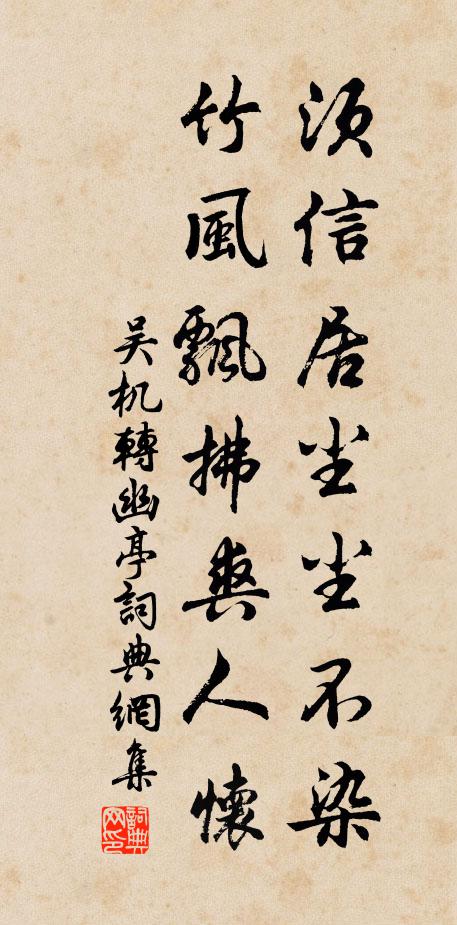 須信居尘尘不染
竹風飄拂爽人懷
吴机轉幽亭詞典網集
詞典网印